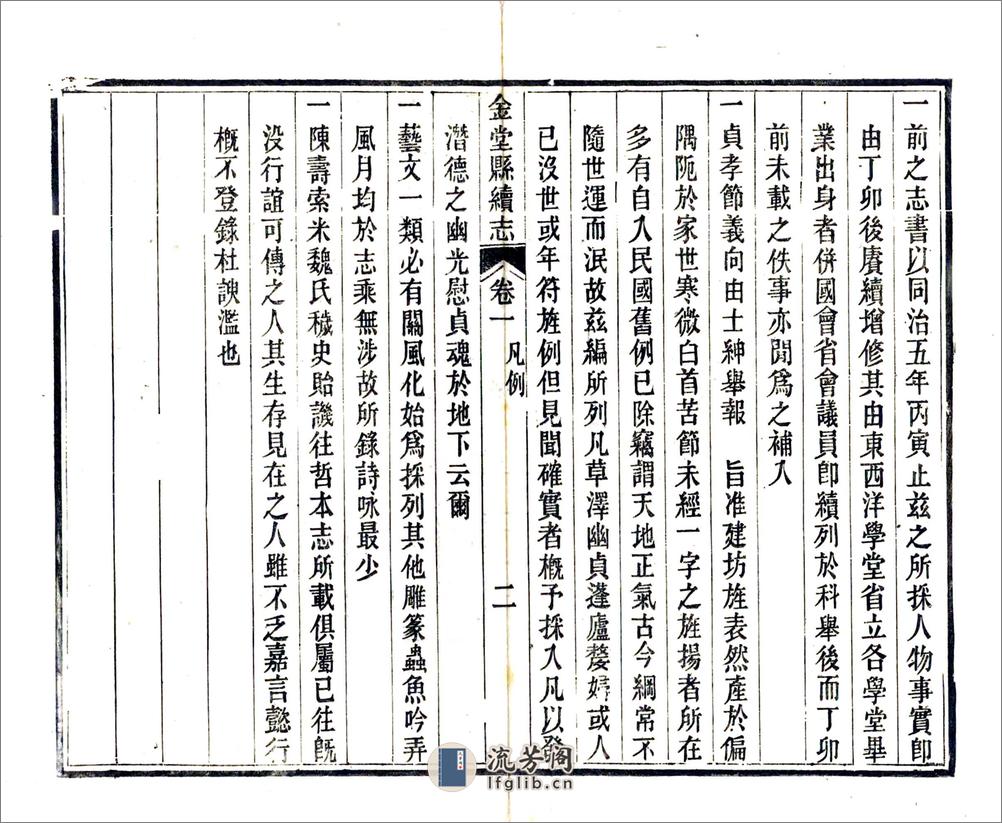 一前之志書以同治五年丙寅止茲之所採人物事實卽
由丁卯後賡續增修其由東西洋學堂省立各學堂畢
業出身者併國會省會議員卽續列於科舉後而丁卯
前未載之佚事亦間爲之補入
一貞孝節義向由士紳舉報　旨准建坊旌表然產於偏
隅阨於家世寒微白首苦節未經一字之旌揚者所在
多有自入民國舊例已除竊謂天地正氣古今綱常不
隨世運而泯故茲編所列凡草澤幽貞蓬廬嫠婦或人
已沒世或年符旌例但見聞確實者概予採入凡以發
金堂縣續志　卷一　凡例　二
潛德之幽光慰貞魂於地下云爾
一藝文一類必有關風化始爲採列其他雕篆蟲魚吟弄
風月均於志乘無涉故所錄詩咏最少
一陳壽索米魏氏穢史貽譏往哲本志所載俱屬已往旣
沒行誼可傳之人其生存見在之人雖不乏嘉言懿行
概不登錄杜諛濫也
流芳閣
lfglib.cn